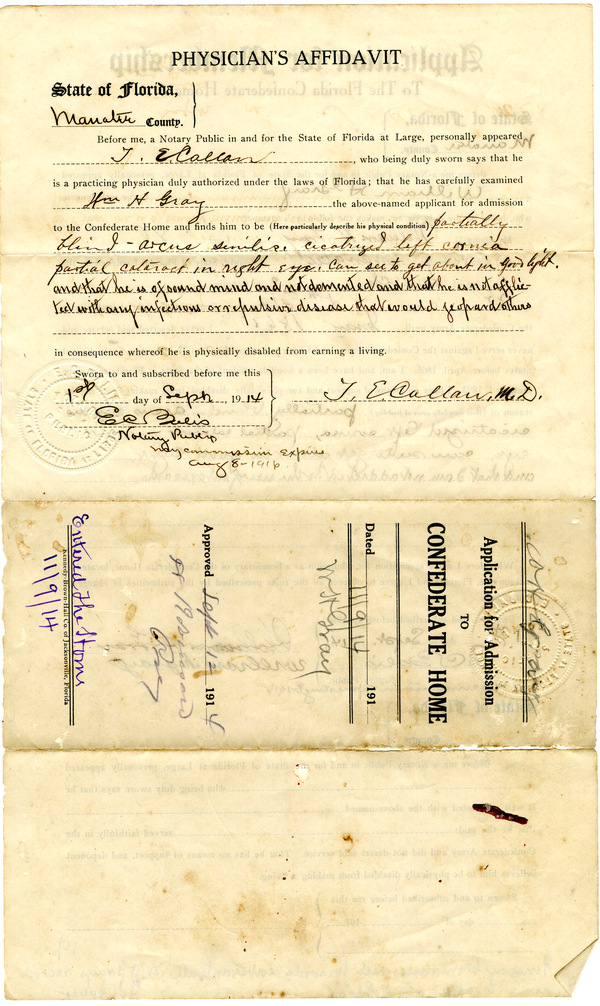 PHYSICIAN'S AFFIDAVIT
State of Florida,
Manatee County.
Before me, a Notary Public in and for the State of Florida at Large, personally appeared
T. E Callan, who being duly sworn says that he
is a practicing physician duly authorized under the laws of Florida; that he has carefully examined
Wm H Gray the above-named applicant for admission
to the Confederate Home and finds him to be (Here particularly describe his physical condition) partially
blind - arcus senilis. cicatrized left cornia
partial cataract in right eye. Can see to get about in good light.
and that he is of sound mind and not demented and that he is not afflic-
ted with any infectious or repulsive disease that would jeopard others
in consequence whereof he is physically disabled from earning a living.
Sworn to and subscribed before me this
1st day of Sept, 1914
T. E Callan, M.D.
E C
Notary Public
my commission expires
aug 8-1916
W H Gray
Application for Admission
TO
CONFEDERATE HOME
Dated 11/9/14 191
W H Gray
Approved Sept 191 4
Kennedy-Brown-Hall Co. of Jacksonville, Florida
Entered the Home
11/9/14